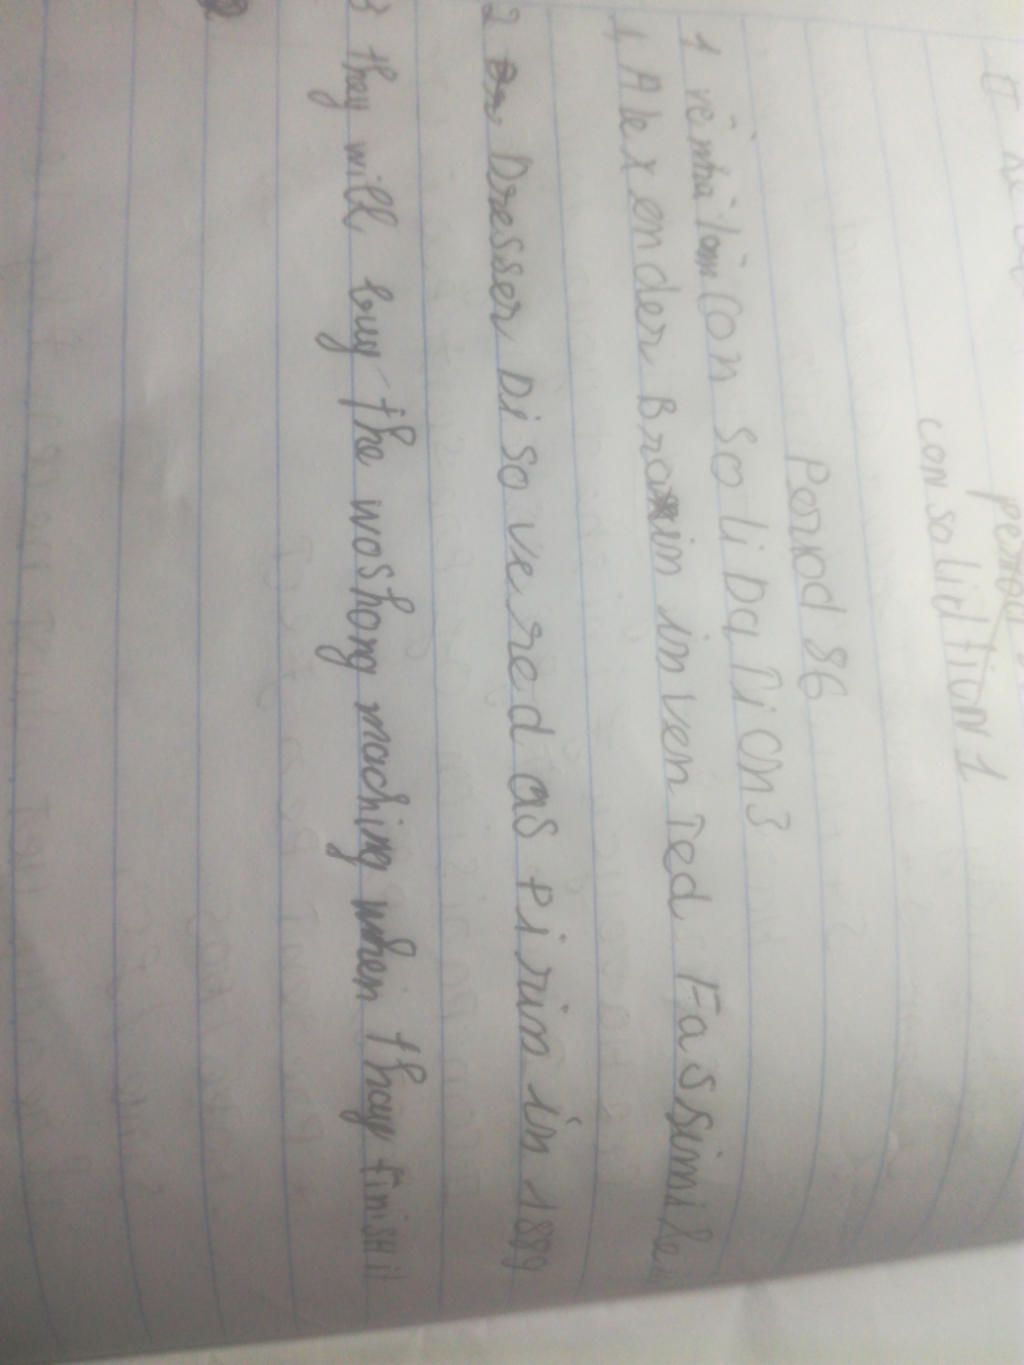 consolidtion 1
Period 86
1 Con so li Da Ti on 3
1, Alexender Brain in ven Ted Fassimile
2 Dresser Di so ve red as Pirin in 1889
3 they will buy the woshong maching when thay finish it